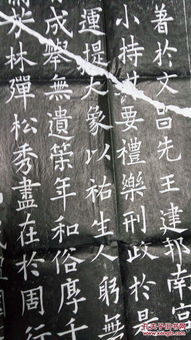 著於文昌先王建邦南宮
小持其要禮樂刑政於是
運提大象以祐生人躬無
成舉無遺策年和俗厚千
林彈松秀盡在於周行
孔夫子旧书网